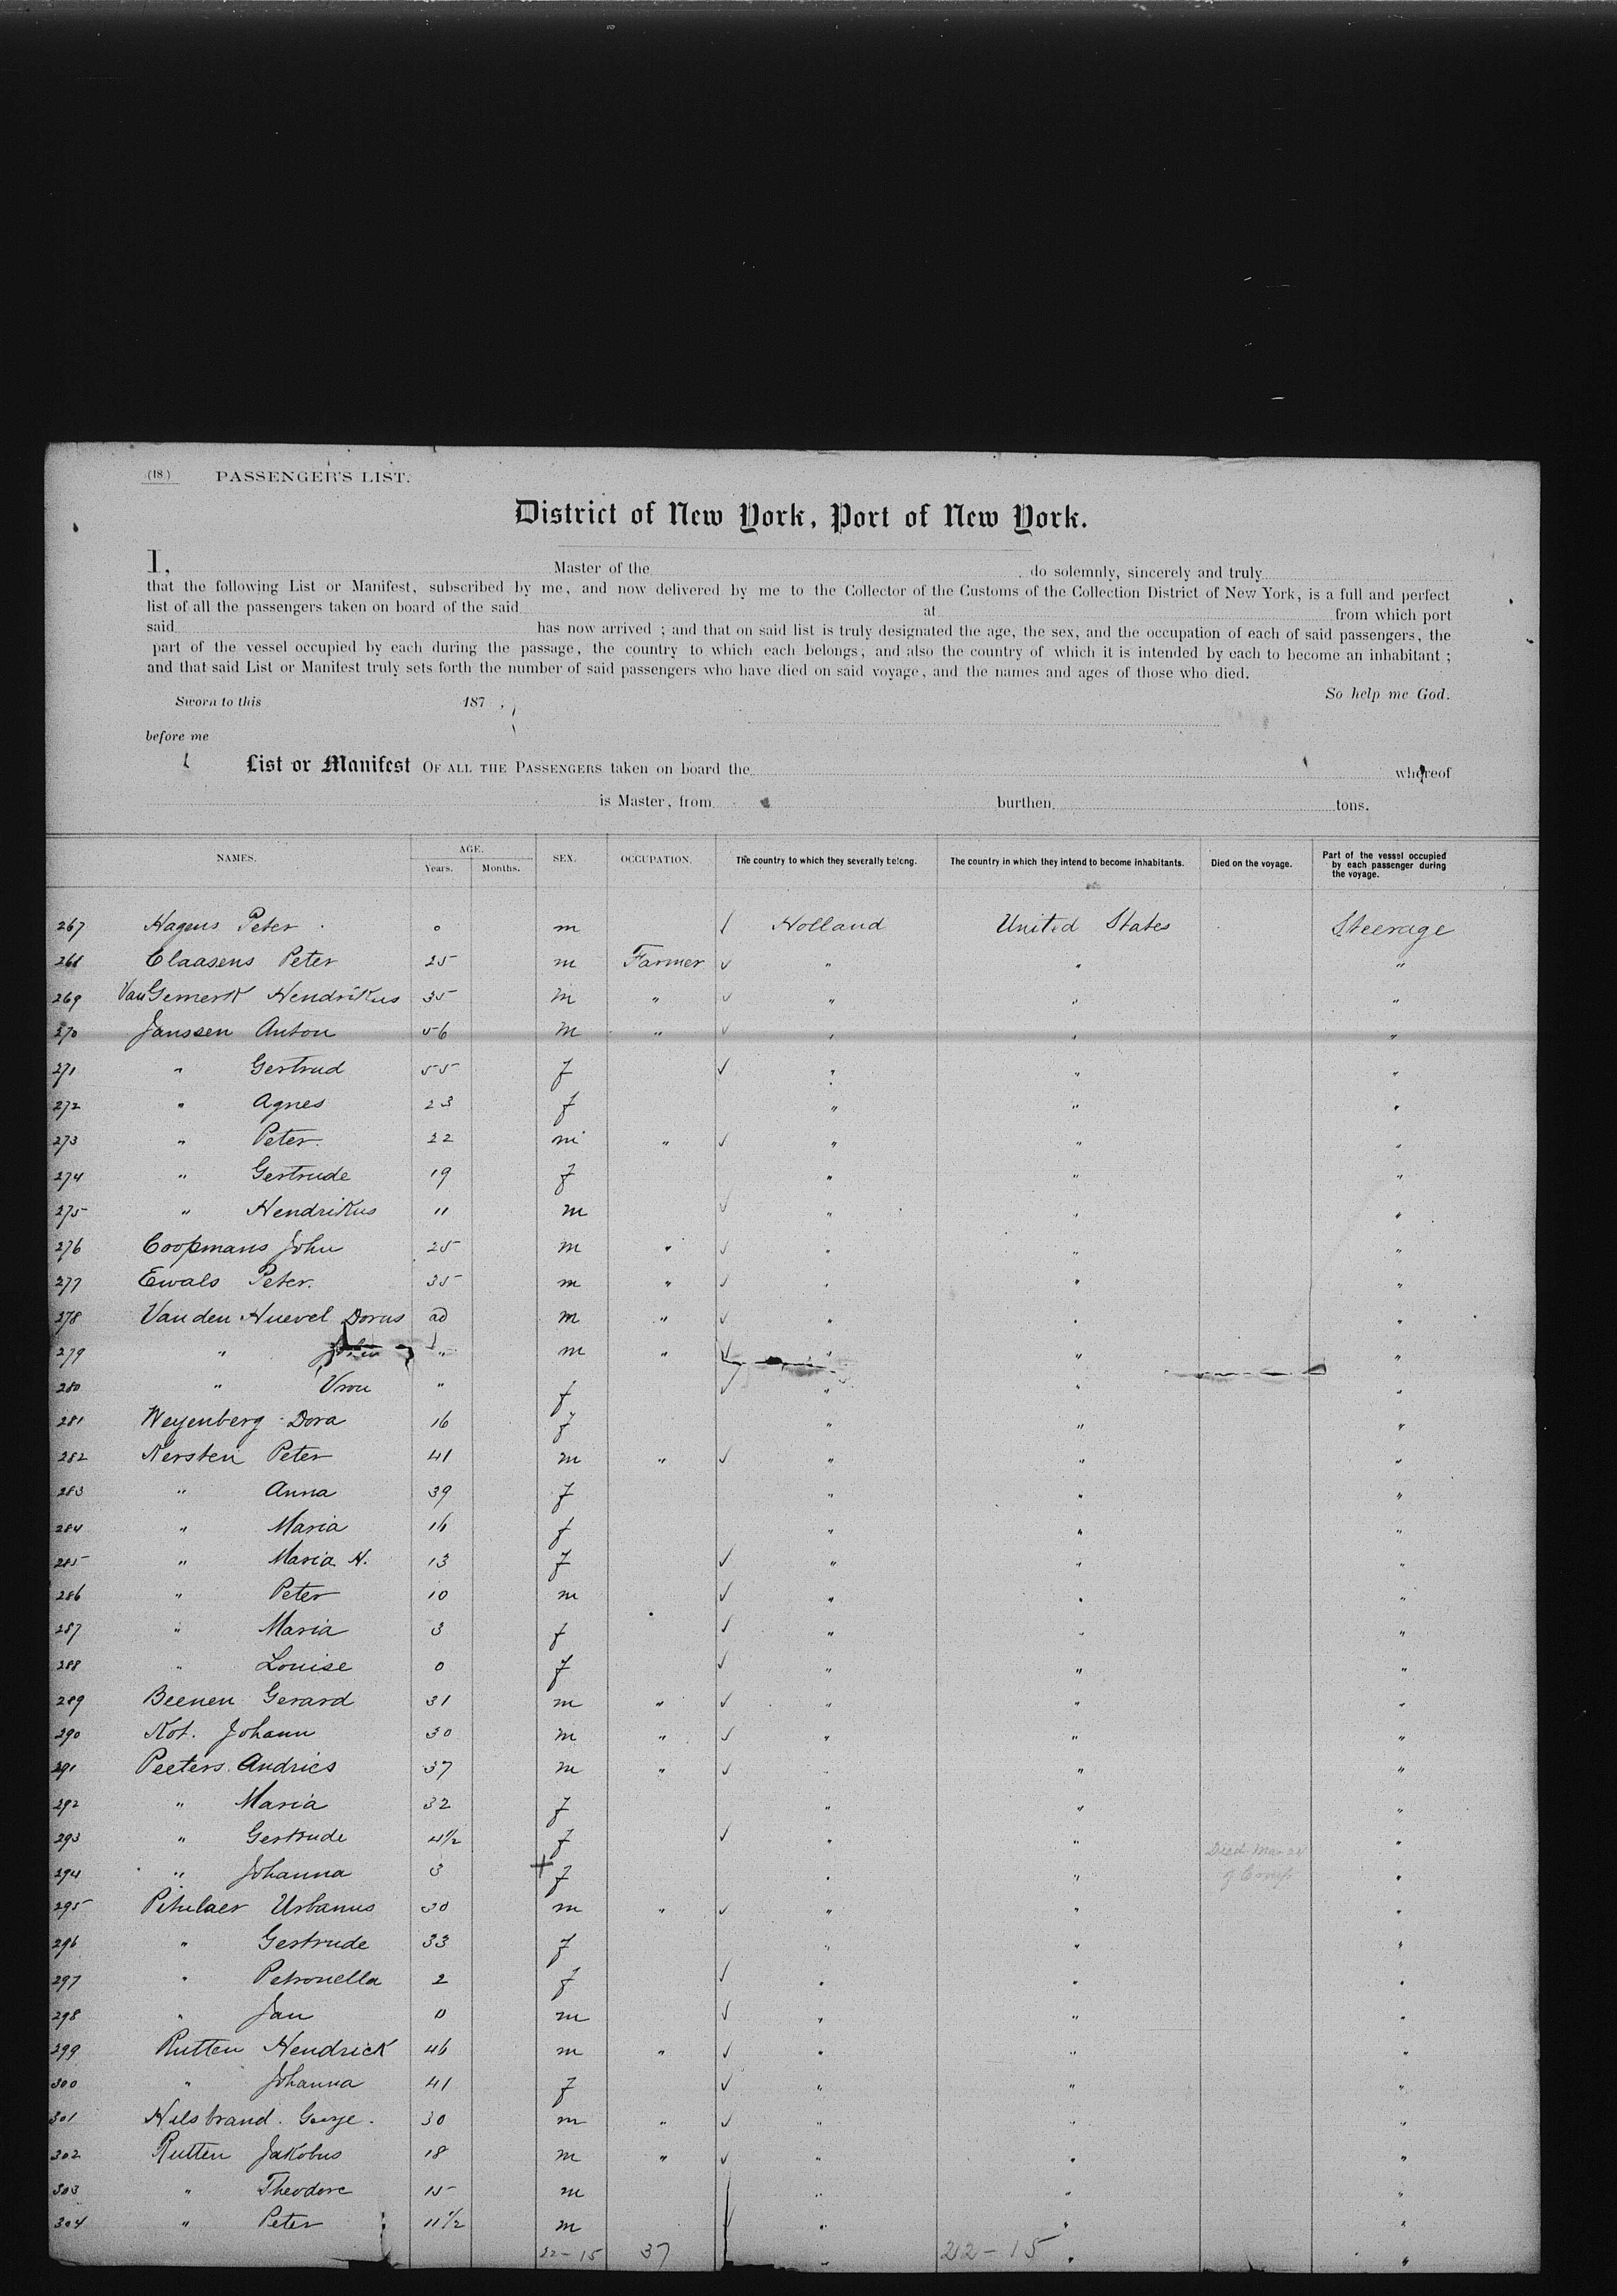 (18) PASSENGER'S LIST.
District of New York, Port of New York.
I, Master of the do solemnly, sincerely and truly
that the following List or Manifest, subscribed by me, and now delivered by me to the Collector of the Customs of the Collection District of New York, is a full and perfect
list of all the passengers taken on board of the said at from which port
said has now arrived ; and that on said list is truly designated the age, the sex, and the occupation of each of said passengers, the
part of the vessel occupied by each during the passage, the country to which each belongs, and also the country of which it is intended by each to become an inhabitant ;
and that said List or Manifest truly sets forth the number of said passengers who have died on said voyage, and the names and ages of those who died.
So help me God.
Sworn to this 187 .
before me
List or Manifest OF ALL THE PASSENGERS taken on board the whereof
is Master, from burthen tons.
NAMES. AGE. Years. Months. SEX. OCCUPATION. The country to which they severally belong. The country in which they intend to become inhabitants. Died on the voyage. Part of the vessel occupied by each passenger during the voyage.
267 Hagens Peter 0 m / Holland United States Steerage
268 Claasens Peter 25 m Farmer ✓ " " "
269 Van Gemerk Hendrikus 35 m " ✓ " " "
270 Janssen Anton 56 m " ✓ " " "
271 " Gertrud 55 f ✓ " " "
272 " Agnes 23 f " " "
273 " Peter. 22 m " ✓ " " "
274 " Gertrude 19 f " " "
275 " Hendrikus 11 m ✓ " " "
276 Coopmans John 25 m " ✓ " " "
277 Ewals Peter. 35 m " ✓ " " "
278 Van den Huevel Dorus ad m " ✓ " " "
279 " John " m " ✓ " " "
280 " Vrou " f ✓ " " "
281 Weyenberg Dora 16 f " " "
282 Kersten Peter 41 m " ✓ " " "
283 " Anna 39 f " " "
284 " Maria 16 f " " "
285 " Maria H. 13 f ✓ " " "
286 " Peter 10 m ✓ " " "
287 " Maria 3 f ✓ " " "
288 " Louise 0 f ✓ " " "
289 Beenen Gerard 31 m " ✓ " " "
290 Kot. Johann 30 m " ✓ " " "
291 Peeters Andries 37 m " ✓ " " "
292 " Maria 32 f " " "
293 " Gertrude 4½ f ✓ " " "
294 " Johanna 3 + f " " Died Mar 24 of Croup "
295 Urbanus 30 m " ✓ " " "
296 " Gertrude 33 f " " "
297 " Petronella 2 f ✓ " " "
298 " Jan 0 m ✓ " " "
299 Rutten Hendrick 46 m " ✓ " " "
300 " Johanna 41 f ✓ " " "
301 Hilsbrand. George. 30 m " ✓ " " "
302 Rutten Jakobus 18 m " ✓ " " "
303 " Theodore 15 m " " "
304 " Peter 11½ m " " "
22-15 37 " 22-15 " "